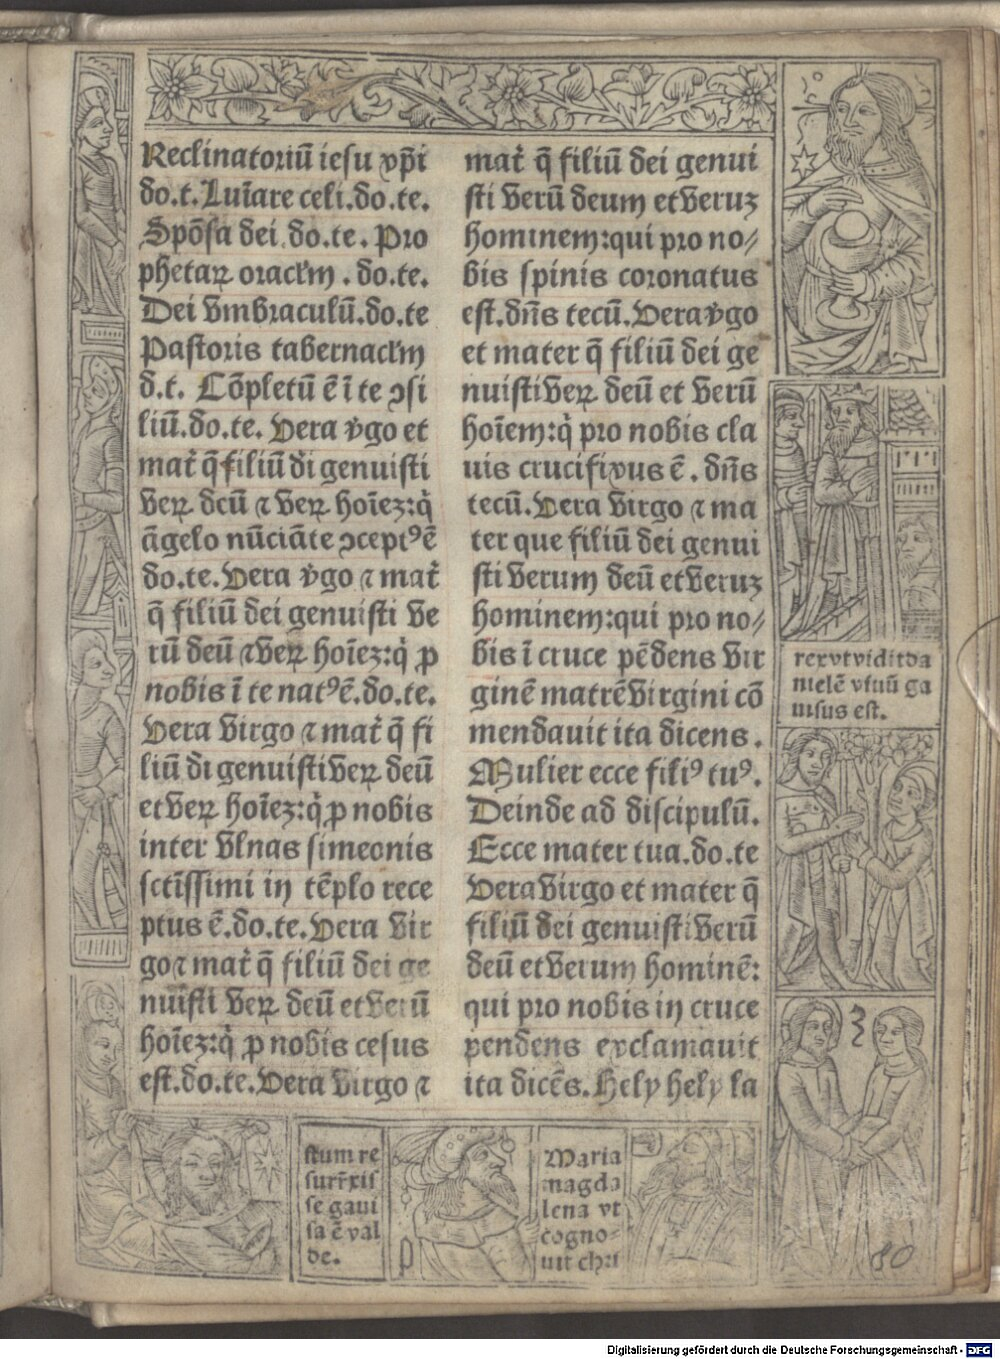 Recliatoriū iesu xp̄i
do.t. Luīare celi.do.te.
Spōsa dei.do.te. Pro
phetaꝝ oracl'm.do.te.
Dei vmbraculū.do.te
Pastoris tabernacl'm
d.t. Cōpletū ē ī te ɔsi
liū.do.te. Vera v̓go et
mat̓ q̄ filiū di genuisti
veꝝ deū ⁊ veꝝ hoīez:q̓
āgelo nūciāte ɔceptꝰ ē
do.te. Vera v̓go ⁊ mat̓
q̄ filiū dei genuisti ve
rū deū ⁊ veꝝ hoīez:q̓ ꝓ
nobis ī te natꝰ ē.do.te.
Vera virgo ⁊ mat̓ q̄ fi
liū di genuisti veꝝ deū
et veꝝ hoīez:q̓ ꝓ nobis
inter vlnas simeonis
sctīssimi in tēplo rece
ptus ē.do.te. Vera vir
go ⁊ mat̓ q̄ filiū dei ge
nuisti veꝝ deū et verū
hoīez:q̓ ꝓ nobis cesus
est.do.te. Vera virgo ⁊
mat̓ q̄ filiū dei genui
sti verū deum et veruz
hominem:qui pro no⸗
bis spinis coronatus
est.dn̄s tecū. Vera v̓go
et mater q̄ filiū dei ge
nuisti veꝝ deū et verū
hoīem:q̓ pro nobis cla
uis crucifixus ē. dn̄s
tecū. Vera virgo ⁊ ma
ter que filiū dei genui
sti verum deū et veruz
hominem:qui pro no⸗
bis ī cruce pēdens vir
ginē matrē virgini cō
mendauit ita dicens.
Mulier ecce filiꝰ tuꝰ.
Deinde ad discipulū.
Ecce mater tua.do.te
Vera virgo et mater q̄
filiū dei genuisti verū
deū et verum hominē:
qui pro nobis in cruce
pendens exclamauit
ita dicēs. Hely hely la
rex vt vidit da
nielē viuū ga
uisus est.
stum re
surr̄xis
se gaui
sa ē val
de.
p
Maria
magda
lena vt
cogno⸗
uit chri
80
Digitalisierung gefördert durch die Deutsche Forschungsgemeinschaft - DFG